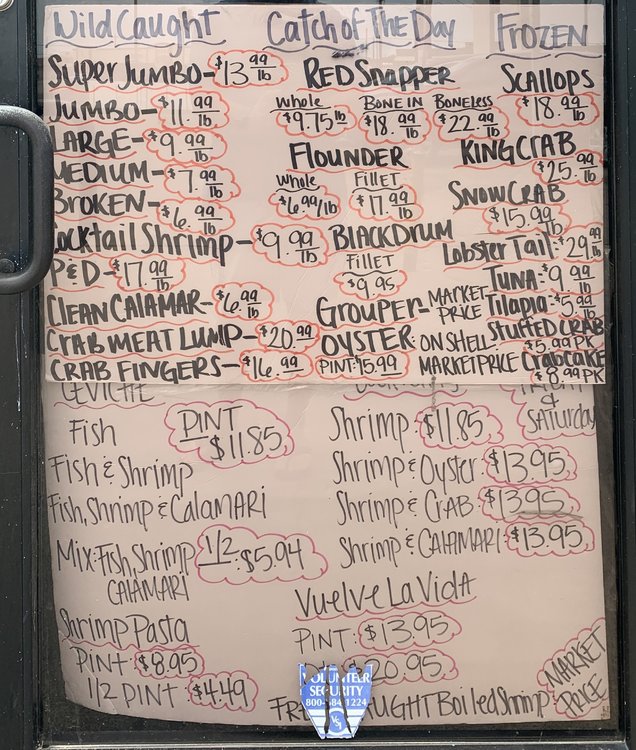 Wild Caught
Super Jumbo - $13.99 lb
Jumbo - $11.99 lb
Large - $9.99 lb
Medium - $7.99 lb
Broken - $6.99 lb
Cocktail Shrimp - $9.99 lb
P&D - $17.99 lb
Clean Calamar - $6.99 lb
Crab Meat Lump - $20.99
Crab Fingers - $16.99
Catch of The Day
Red Snapper
Whole Bone In Boneless
$9.75 lb $18.99 lb $22.99 lb
Flounder
Whole Fillet
$6.99/lb $17.99 lb
Black Drum
Fillet
$9.95
Grouper - Market Price
Oyster: On Shell
Pint: 15.99 Market Price
Frozen
Scallops
$18.99 lb
King Crab
$25.99 lb
Snow Crab
$15.99 lb
Lobster Tail: $29.99 lb
Tuna: $9.99 lb
Tilapia: $5.99 lb
Stuffed Crab
$5.99 PK
Crabcake
$8.99 PK
Ceviche
Fish
Pint $11.85
Fish & Shrimp
Fish, Shrimp & Calamari
Mix: Fish, Shrimp Calamari
1/2: $5.94
Shrimp Pasta
Pint: $8.95
1/2 Pint: $4.49
& Saturday
Shrimp: $11.85
Shrimp & Oyster: $13.95
Shrimp & Crab: $13.95
Shrimp & Calamari: $13.95
Vuelve La Vida
Pint: $13.95
$20.95
Boiled Shrimp: Market Price
VOLUNTEER
SECURITY